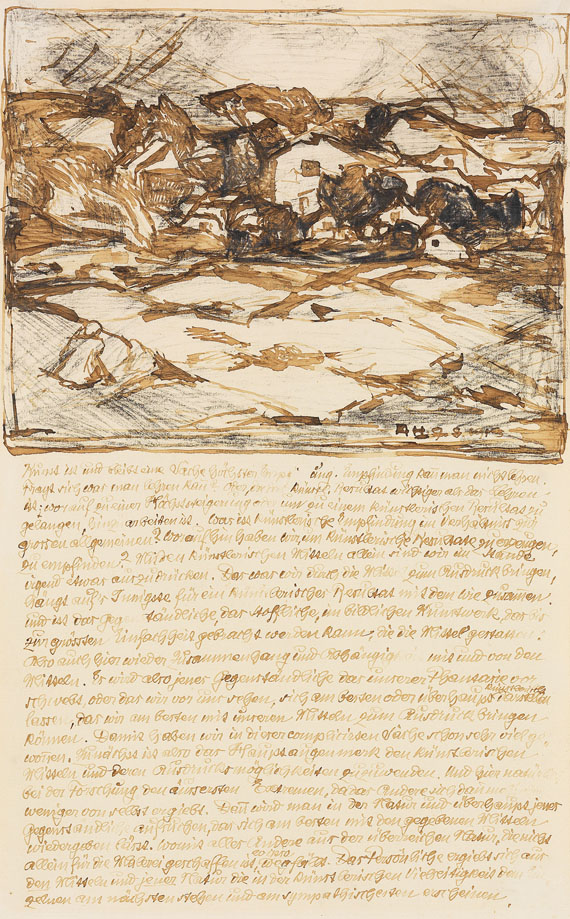 Kunst ist und bleibt eine Sache höchster Empf ung. Empfindung kan man nicht lehren.
Fragt sich was man lehren kan? oder, um ein künstl. Resultat wichtiger als das Lehren
ist: worauf zu einer Höchststeigerung oder um zu einem künstlerischen Resultat zu
gelangen, hinzuarbeiten ist. Was ist künstlerische Empfindung im Verhältnis zur
grossen allgemeinen? Worauf hin haben wir, um künstlerische Resultate zu erzeugen,
zu empfinden? Mit den künstlerischen Mitteln allein sind wir im Stande
irgend etwas auszudrücken. Das was wir durch die Mittel zum Ausdruck bringen,
hängt aufs Innigste für ein künstlerisches Resultat mit dem wie zusamen.
und ist das Gegenständliche, das Stoffliche, im bildlichen Kunstwerk, das bis
zur grössten Einfachheit gebracht werden kann, die die Mittel gestatten.
Also auch hier wieder Zusammenhang und Abhängig mit und von den
Mitteln. Es wird also jenes Gegenständliche das unserer Phantasie vor
schwebt, oder das wir vor uns sehen, sich am besten oder überhaupt künstlerisch darstellen
lassen, das wir am besten mit unseren Mitteln zum Ausdruck bringen
können. Damit haben wir in dieser complicirten Sache schon sehr viel ge-
wonnen. Zunächst ist also das Hauptaugenmerk den künstlerischen
Mitteln und deren Ausdrucksmöglichkeiten zuzuwenden. Und zwar
bei der Forschung den äussersten Extremen, da das Andere sich dann
weniger von selbst ergiebt. Den wird man in der Natur und überhaupt jenes
gegenständliche aufsuchen, das sich am besten mit den gegebenen Mitteln
wiedergeben lässt. Womit alles Andere aus der überreichen Natur, die nicht
allein für die Malerei geschaffen ist, Das Persönliche ergiebt sich aus
den Mitteln und jener Natur die in der künstlerischen Vielseitigkeit dem
gelnen am nächsten stehen und am sympathischesten erscheinen.